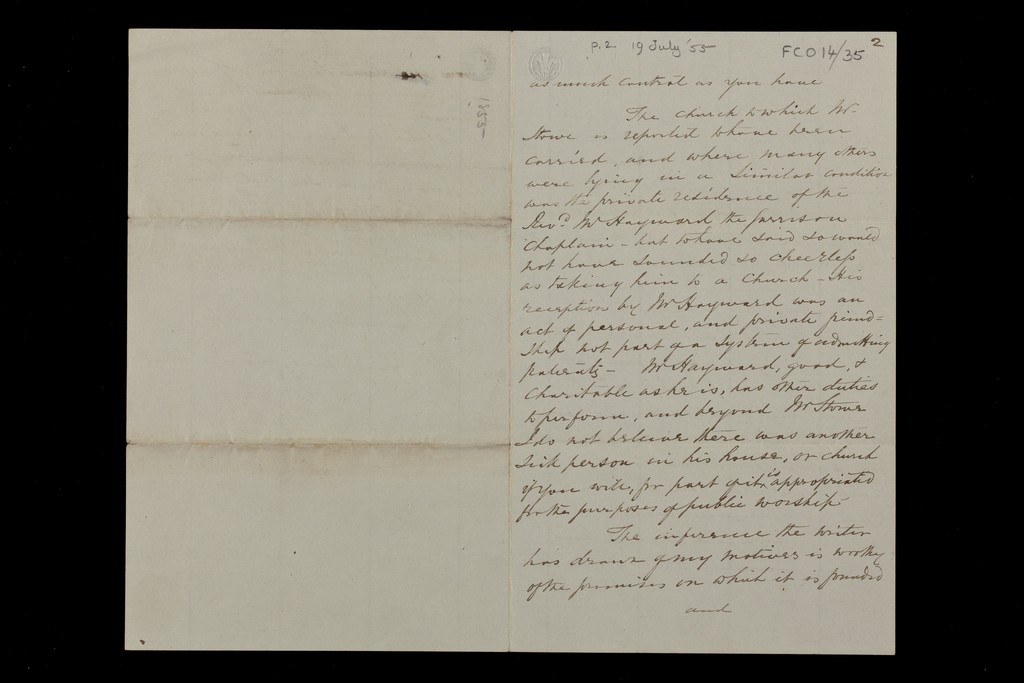 p. 2. 19 July '55
FCO 14/35
2
1855
as much control as you have
The church to which Mr
Stowe is reported to have been
carried, and where many others
were lying in a similar condition
was the private residence of the
Revd. Mr Hayward the Garrison
Chaplain - but to have said so would
not have sounded so cheerless
as taking him to a Church - His
reception by Mr Hayward was an
act of personal, and private friend=
ship not part of a system of admitting
patients - Mr Hayward, good, &
charitable as he is, has other duties
to perform, and beyond Mr Stowe
I do not believe there was another
sick person in his house, or church
if you will, for part of it is appropriated
for the purposes of public worship -
The inference the writer
has drawn of my motives is worthy
of the premises on which it is founded
and